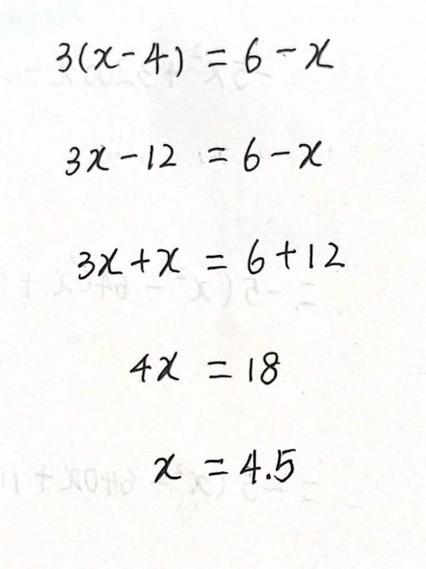 3(x-4) = 6-x
3x-12 = 6-x
3x+x = 6+12
4x = 18
x = 4.5